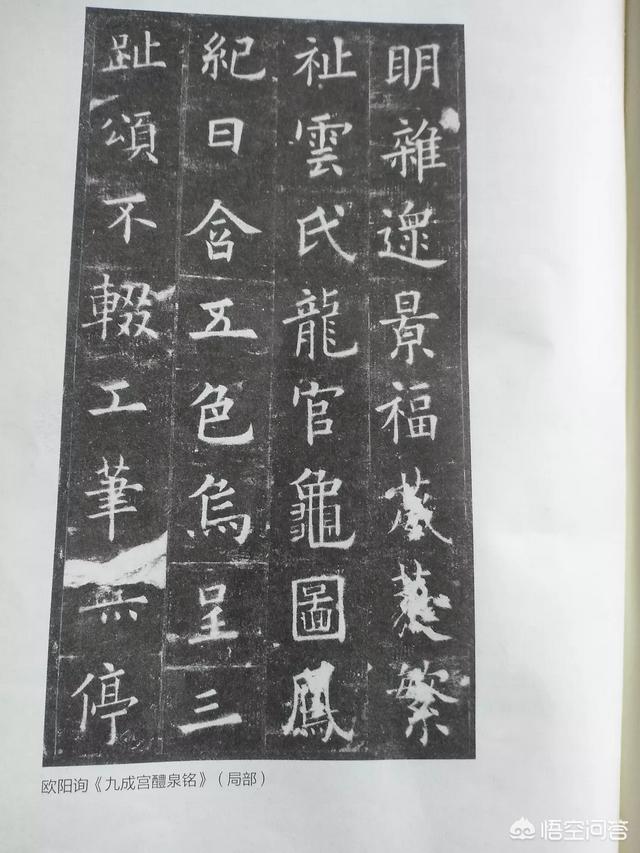 明雜遝景福葳蕤繁
祉雲氏龍官龜圖鳳
紀日含五色烏呈三
趾頌不輟工筆停
欧阳询《九成宫醴泉铭》（局部）
悟空问答